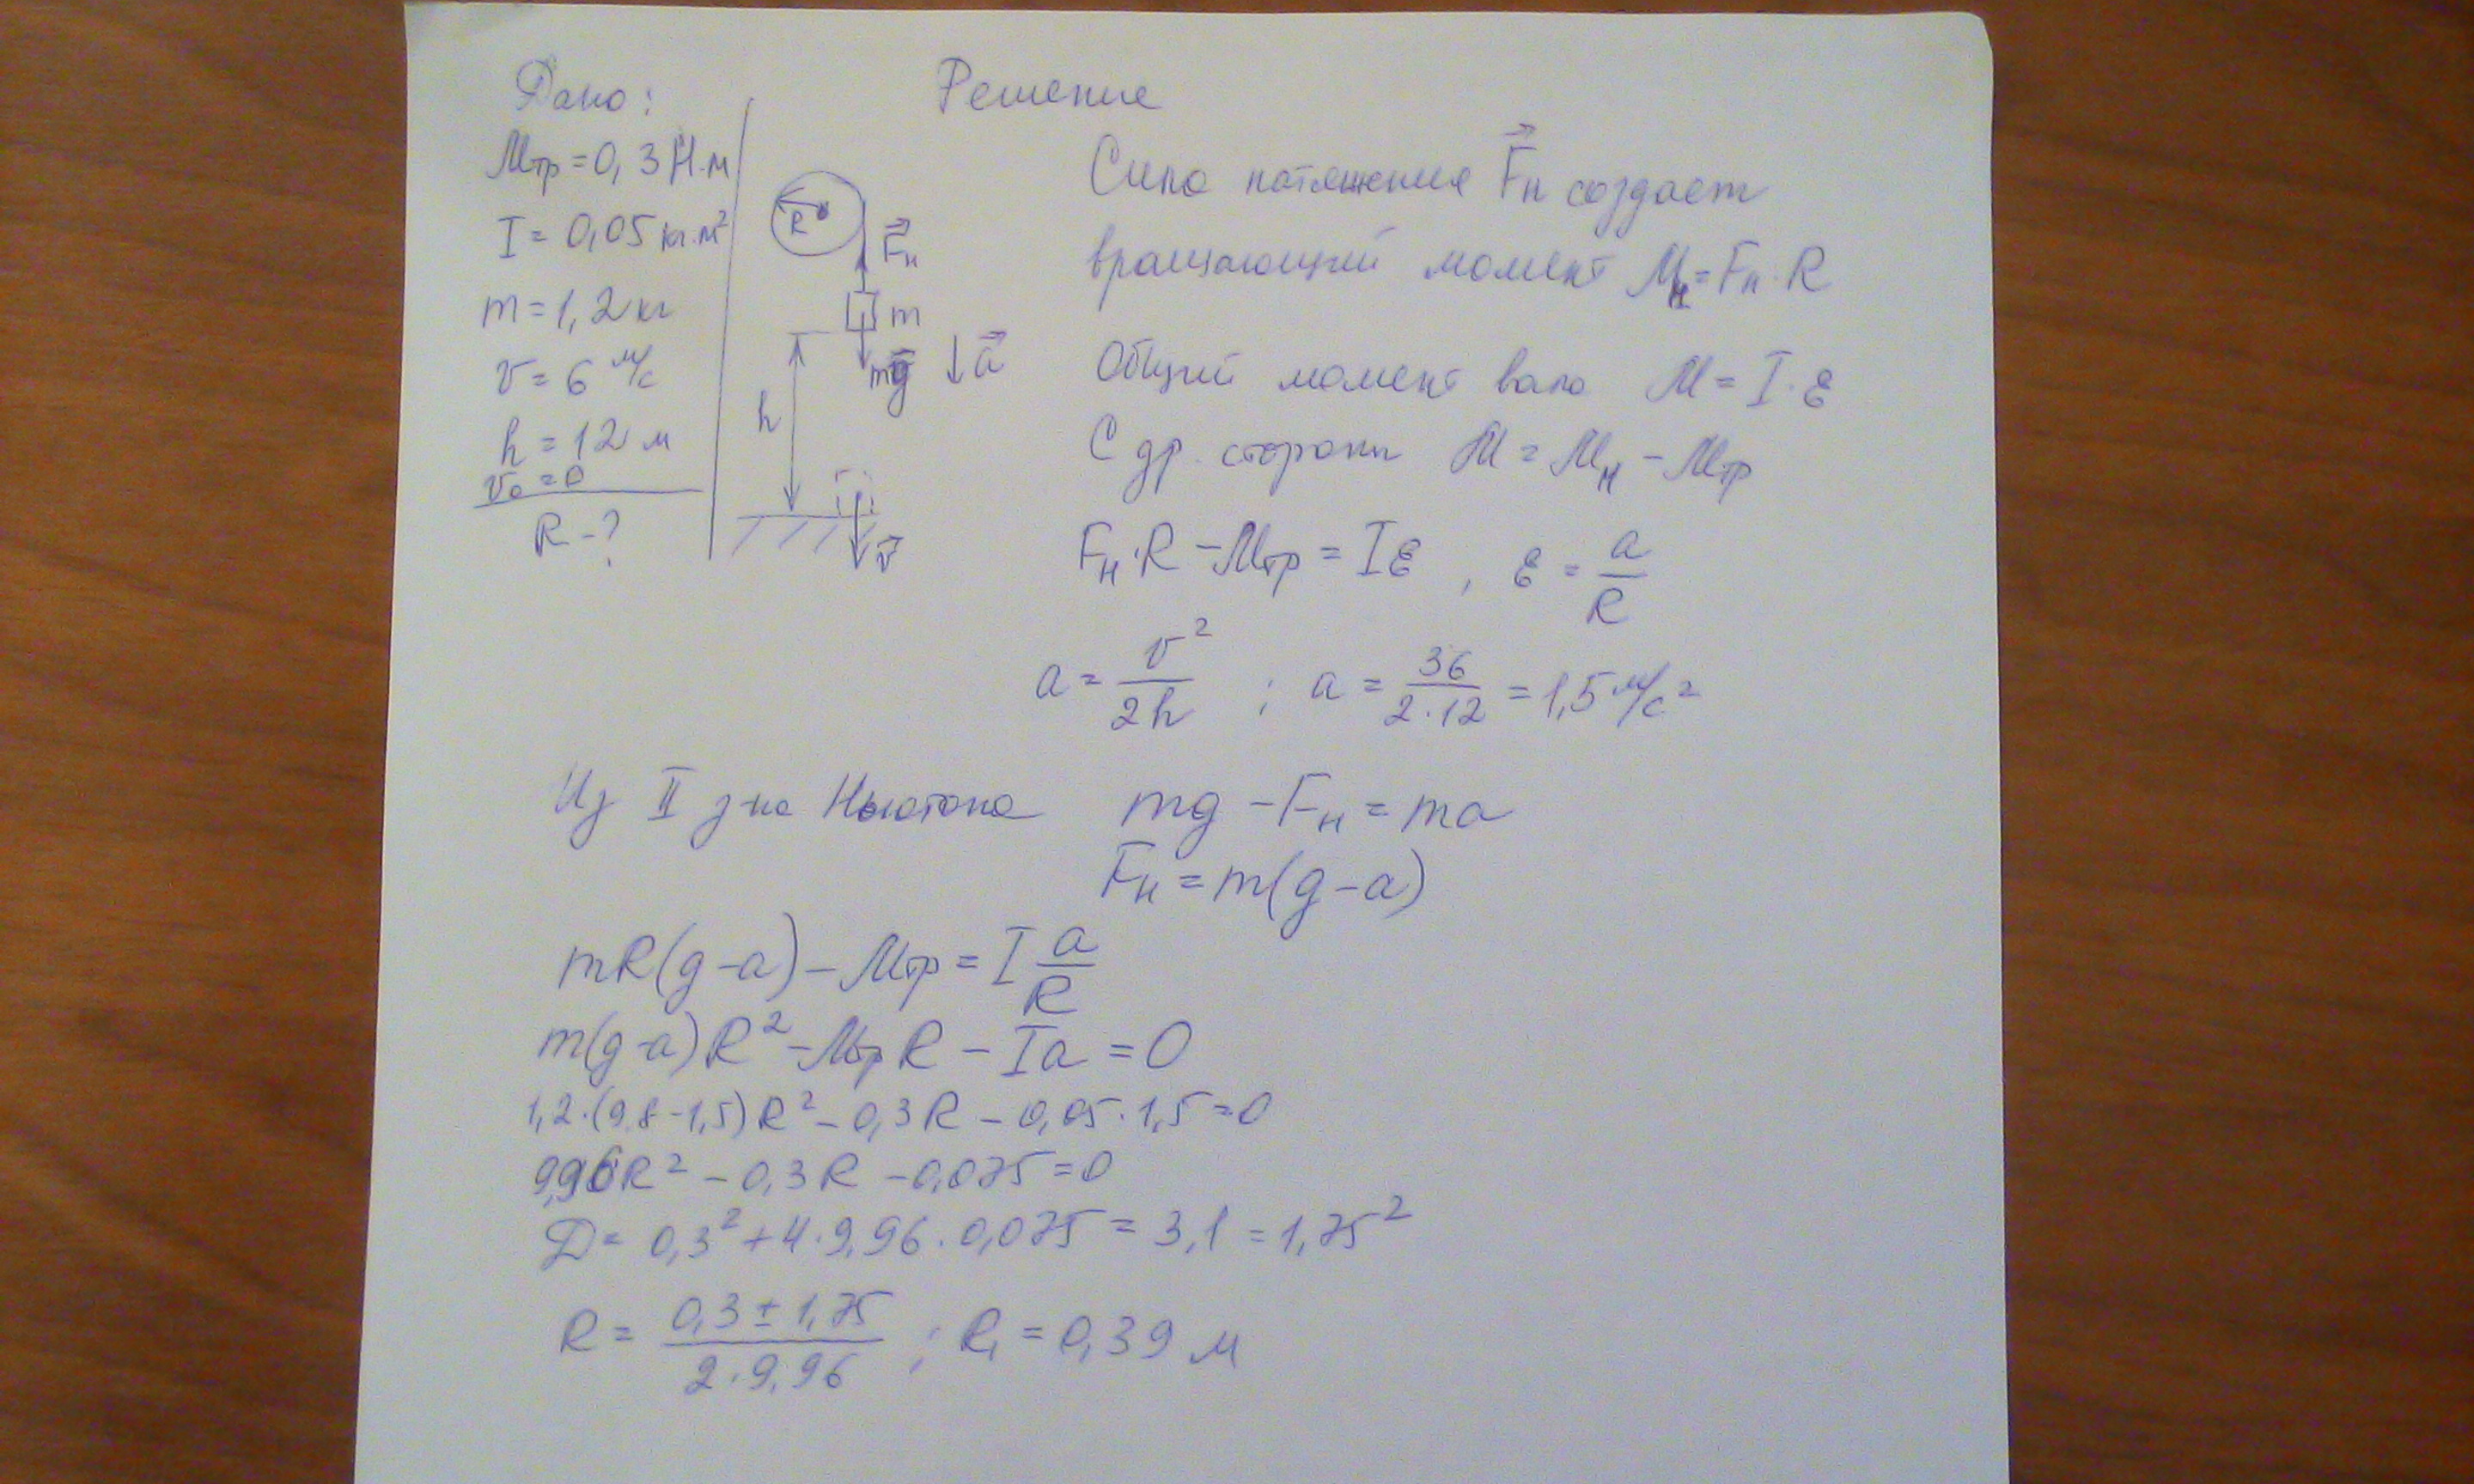 Дано:
Mтр = 0,3 Н·м
I = 0,05 кг·м²
m = 1,2 кг
v = 6 м/с
h = 12 м
v₀ = 0
R - ?
R
F⃗н
m
mg⃗
a⃗
h
v⃗
Решение
Сила натяжения F⃗н создает
вращающий момент Mн = Fн · R
Общий момент вала M = I · ε
С др. стороны M = Mн - Mтр
Fн · R - Mтр = Iε , ε = a/R
a = v²/2h ; a = 36/2·12 = 1,5 м/с²
Из II з-на Ньютона mg - Fн = ma
Fн = m(g-a)
mR(g-a) - Mтр = I a/R
m(g-a)R² - MтрR - Ia = 0
1,2·(9,8-1,5)R² - 0,3R - 0,05·1,5 = 0
9,96R² - 0,3R - 0,075 = 0
Д = 0,3² + 4·9,96·0,075 = 3,1 = 1,75²
R = 0,3 ± 1,75/2·9,96 ; R₁ = 0,39 м